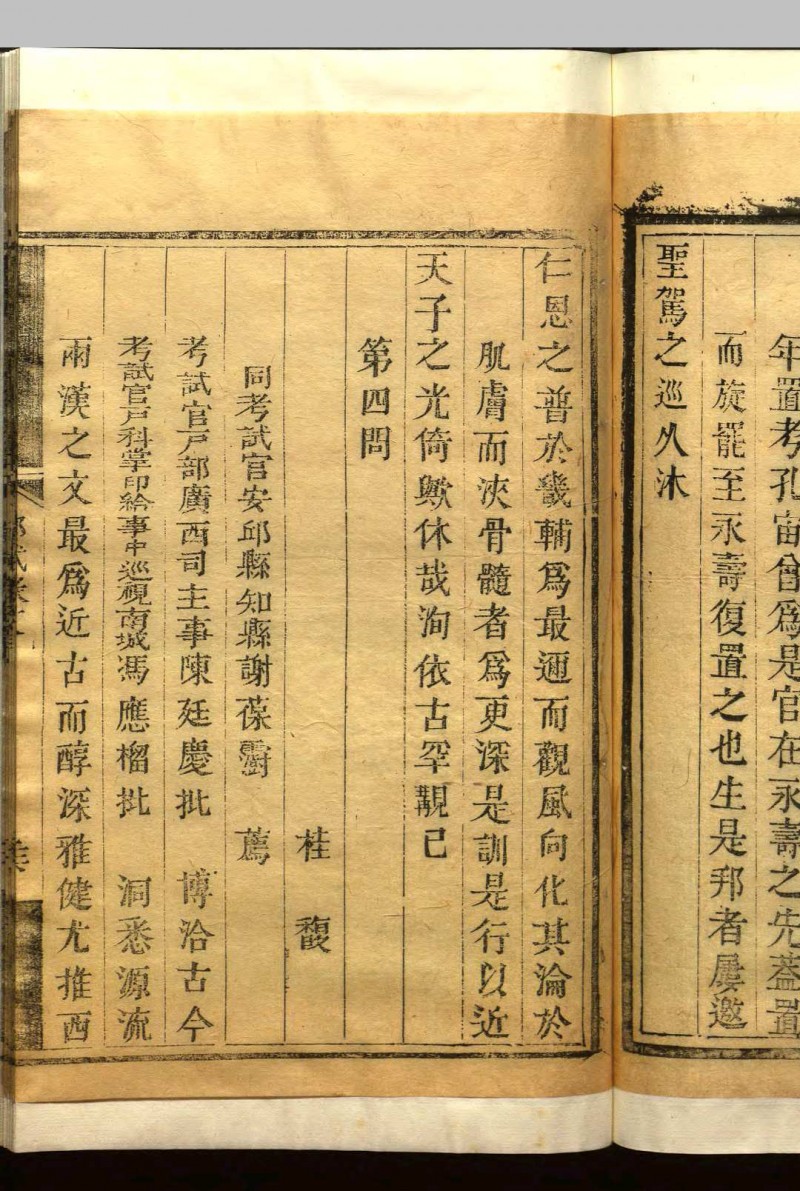 年置考孔宙曾爲是官在永壽之先蓋置
而旋罷至永壽復置之也生是邦者屢邀
聖駕之巡久沐
仁恩之普於畿輔爲最邇而觀風向化其淪於
肌膚而浹骨髓者爲更深是訓是行以近
天子之光倚歟休哉洵依古罕覯已
第四問
桂馥
同考試官安邱縣知縣謝葆澍薦
考試官戸部廣西司主事陳廷慶批 博洽古今
考試官戸科掌印給事中巡視南城馮應榴批 洞悉源流
兩漢之文最爲近古而醇深雅健尤推西